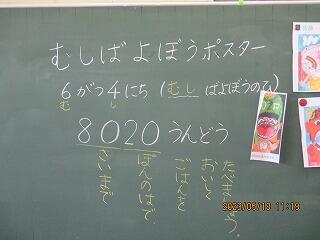 むしばよぼうポスター
6がつ4にち(むしばよぼうのひ)
む し
8020うんどう
さいまで
ぽんのはで、
ごはんを
おいしく
たべましょう。
2023/06/13 11:19